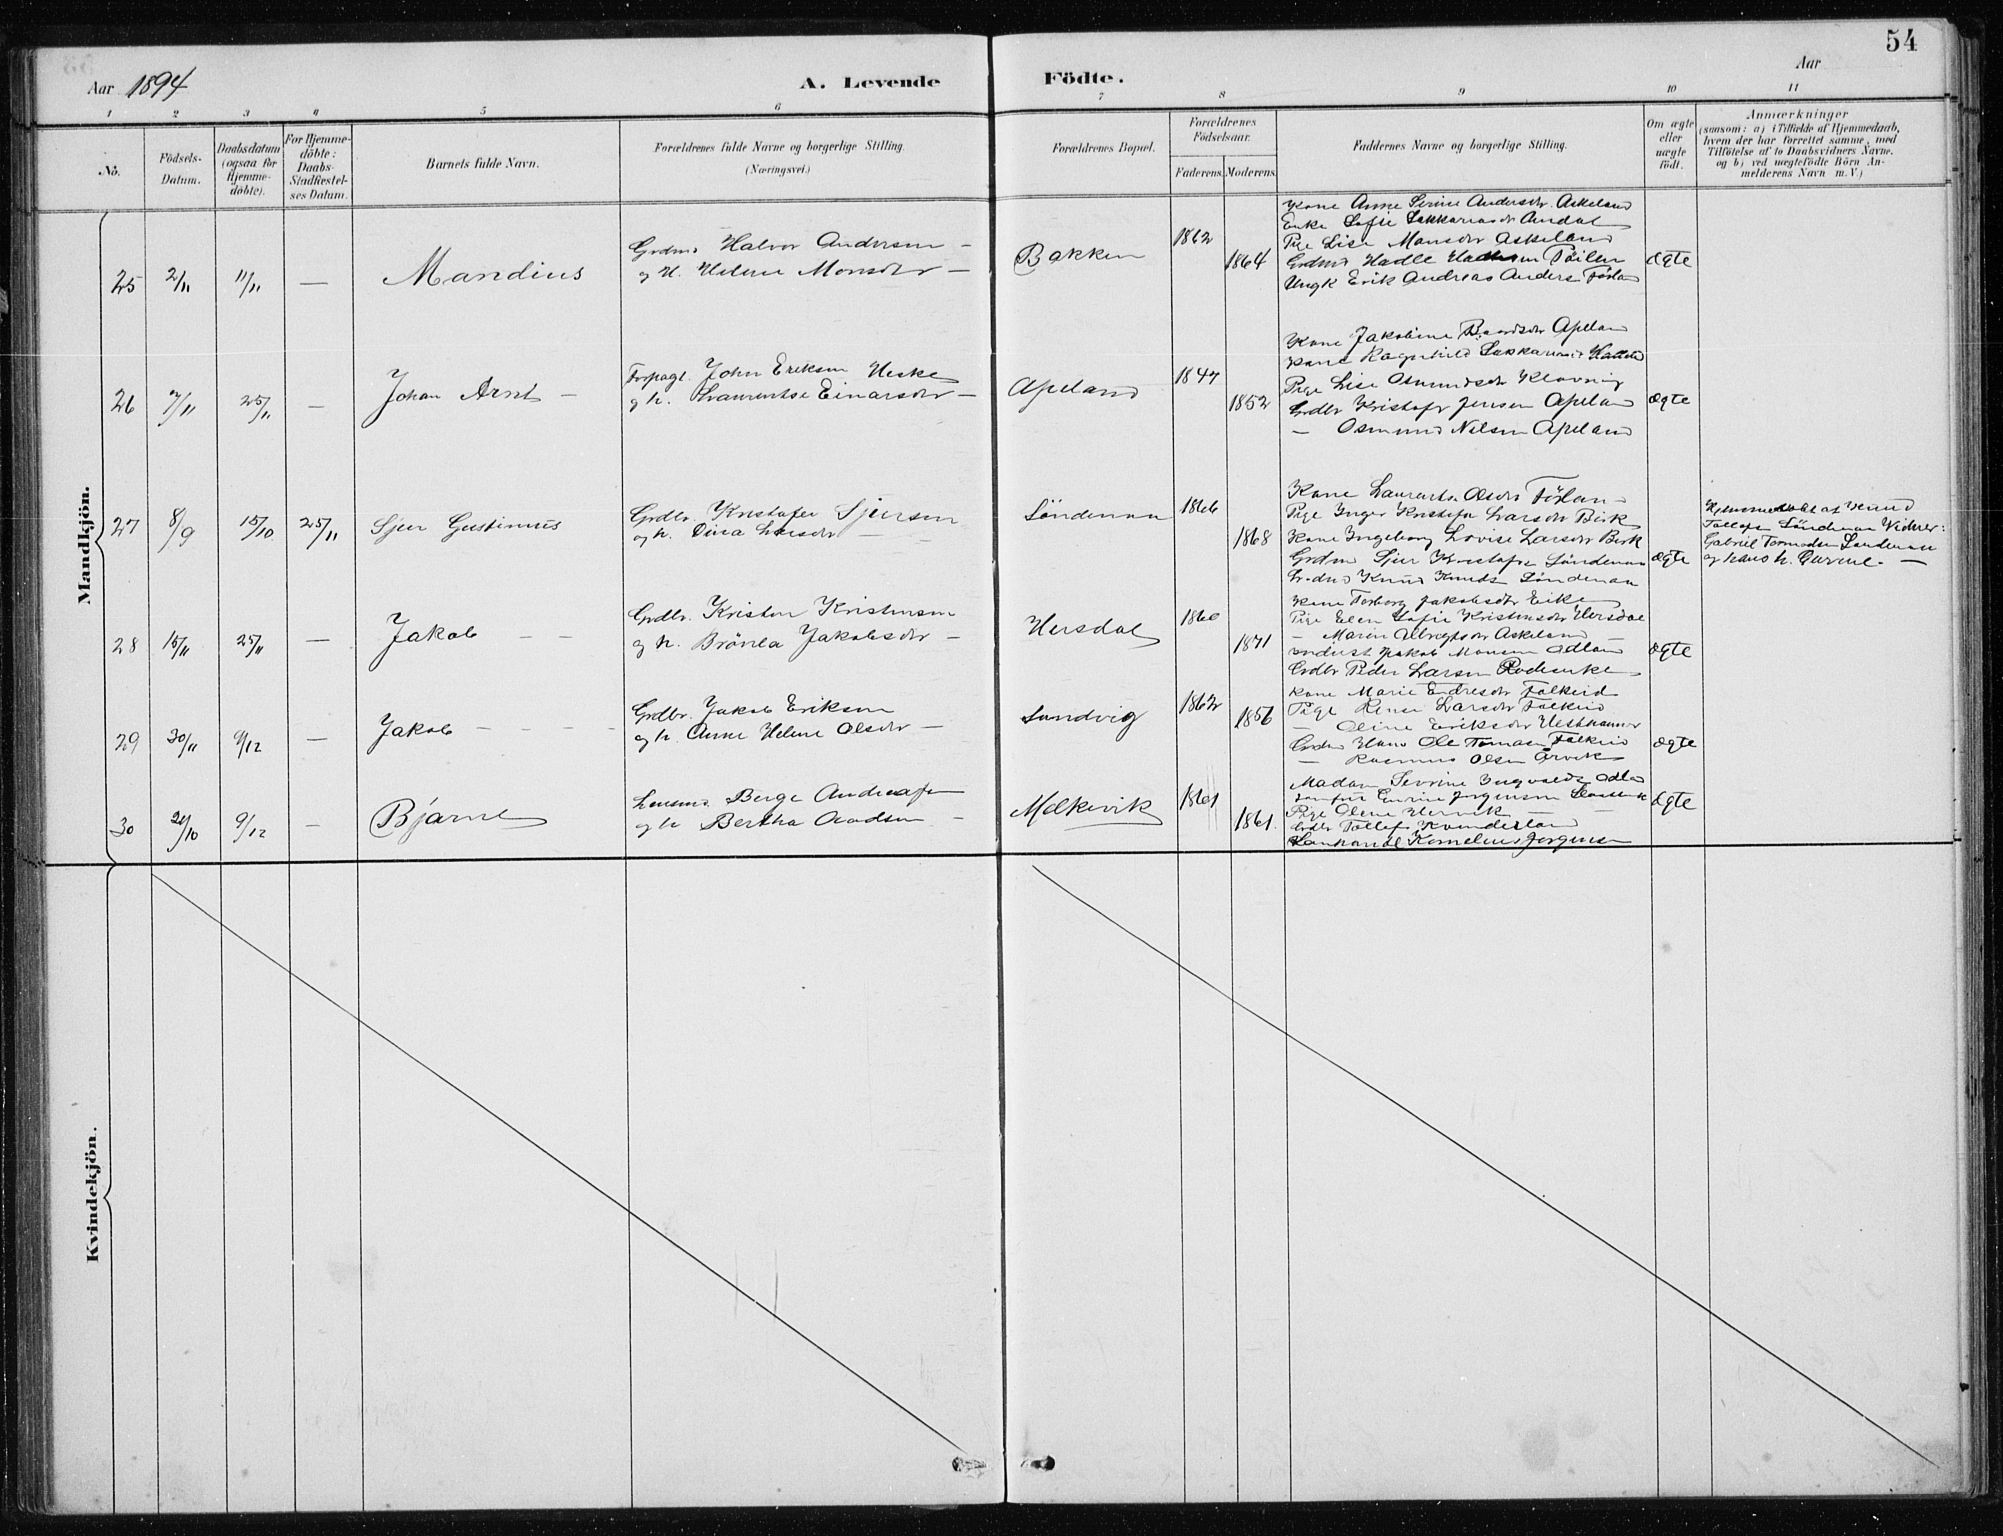 54
Aar 1894
A. Levende Födte.
Aar
1 2 3 4 5 6 7 8 9 10 11
Nô.
Födsels-Datum.
Daabsdatum (ogsaa for Hjemme-döbte).
For Hjemme-döbte: Daabs-Stadfæstel-ses Datum.
Barnets fulde Navn.
Forældrenes fulde Navne og borgerlige Stilling. (Næringsvei.)
Forældrenes Bopæl.
Forældrenes Födselsaar.
Faderens.
Moderens.
Faddernes Navne og borgerlige Stilling.
Om ægte eller uægte födt.
Anmærkninger
(saasom: a) i Tilfælde af Hjemmedaab,
hvem der har forrettet samme, med
Tilföielse af to Daabsvidners Navne.
og b) ved uægtefödte Börn An-
melderens Navn m. V.)
Mandkjön.
25 2/11 11/11 — Mandius
Grdm. Halvor Andersen —
og H. Helene Monsdtr —
Bakken 1862 1864
Kone Anne Serine Andersdr. Askeland
Enke Sofie Sakkariasdr Aadal
Pige Lise Monsdr Askeland
Grdmd Hadle
Ungk Erik Andreas Anders Förlan
ægte
26 7/11 25/11 — Johan Arnt —
John Eriksen Heske
og h. Laurentse Einarsdtr —
Apeland 1847 1852
Kone Jakobine Baardsdr Apelan
Kone Ragnhild
Pige Lise Osmundsdr Klovning
Grdbr Kristofr Jensen Apelan
— Osmund Nilsen Apeland
ægte
27 8/9 15/10 25/11 Sjur Gustinius
Grdbr. Kristofer Sjursen
og h. Dina Larsdr — —
Söndenaa 1866 1868
Kone Laurentse Olsdr Förlan —
Pige Inger Kristofa Larsdr Birk
Kone Ingeborg Lovise Larsdr Birk
Grdm Sjur Kristofr Söndenaa
Grdmd Knud Knuds Söndenaa
ægte
Hjemmedöbt af Knud
Tollefsn Söndenaa Vidner:
Gabriel Tormodsen Söndenaa
og hans h. Gurine. —
28 15/11 25/11 — Jakob — —
Grdbr. Kristen Kristensen
og h. Brönla Jakobsdtr —
Hersdal 1860 1871
Kone Torborg Jakobsdtr Eike
Pige Elen Sofie Kristensdr Hersdal
— Marin Albregtsdr Askeland
Jakob Monsen Odlan
Grdbr Peder Larsen
ægte
29 30/11 9/12 — Jakob — — —
Grdbr. Jakob Eriksen
og h. Anne Helene Olsdtr —
Sandvig 1862 1856
Kone Marie Endresdr Falkeid
Pige Larsdr Falkeid
— Oline Eriksdr
Hans Ole Tomasen Falkeid
— Rasmus Olsen Örvik
ægte
30 20/10 9/12 — Bjarne
Lensmd Berge Andreasen
og h Bertha —
Melkevik 1861 1861.
Madam Serine
Jörgensen
Pige Olene Hervik —
Grdbr Tollef Kvindesland
Kornelius Jörgensen
ægte
Kvindekjön.